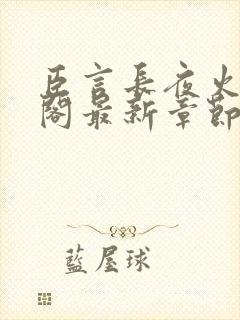 臣言長夜火
閣最新章節
藍屋球